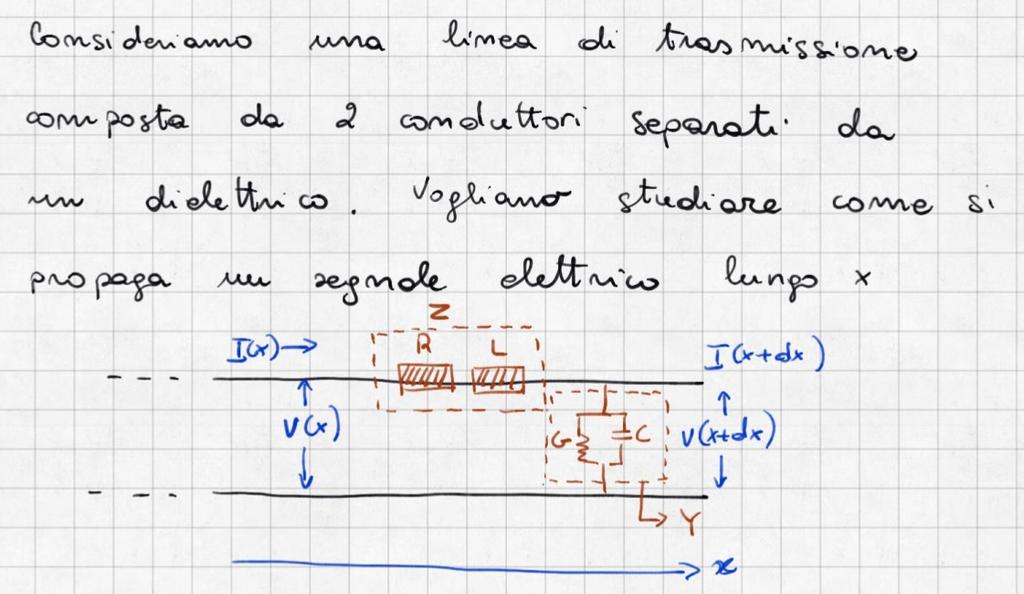 Consideriamo una linea di trasmissione
composta da 2 conduttori separati da
un dielettrico. Vogliamo studiare come si
propaga un segnale elettrico lungo x
Z
I(x) R L I(x+dx)
V(x) G C V(x+dx)
Y
x